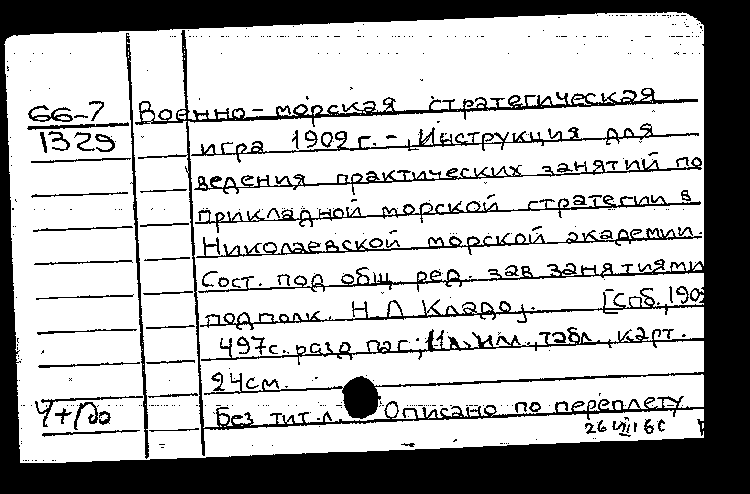 66-7 Военно-морская стратегическая
1329 игра 1902 г. - Инструкция для
ведения практических занятий по
прикладной морской стратегии в
Николаевской морской академии.
Сост. под общ ред. зав занятиями
подполк. Н Л Кладо].
[Спб, 190
497с. разд паг; Ил. илл., табл., карт.
24см.
Без тит. л. Описано по переплету
26 VIII 6